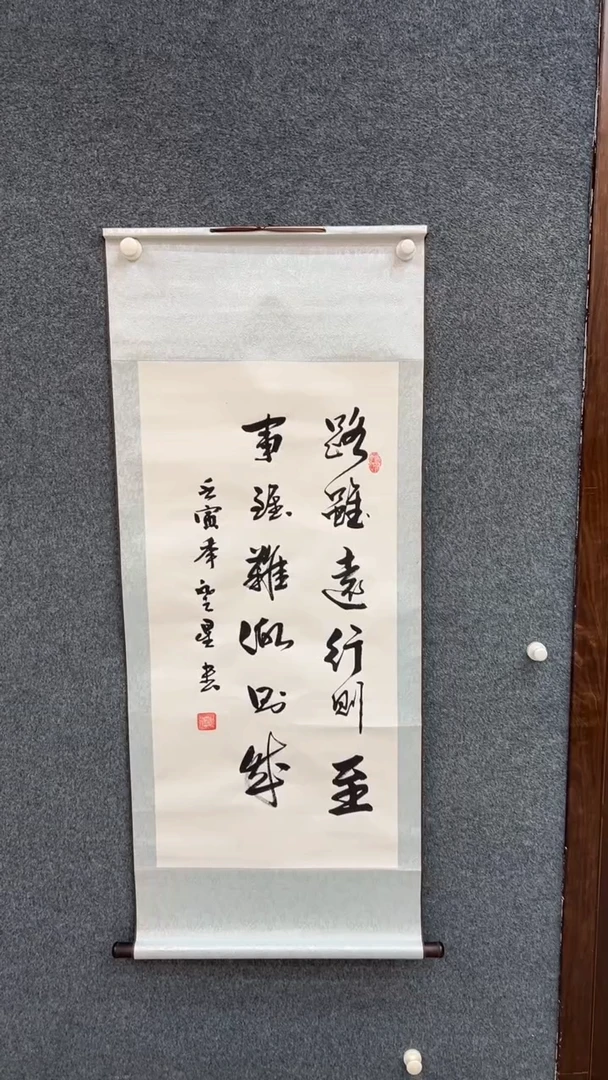 路雖遠行則至
事雖難做則成
壬寅年 星書